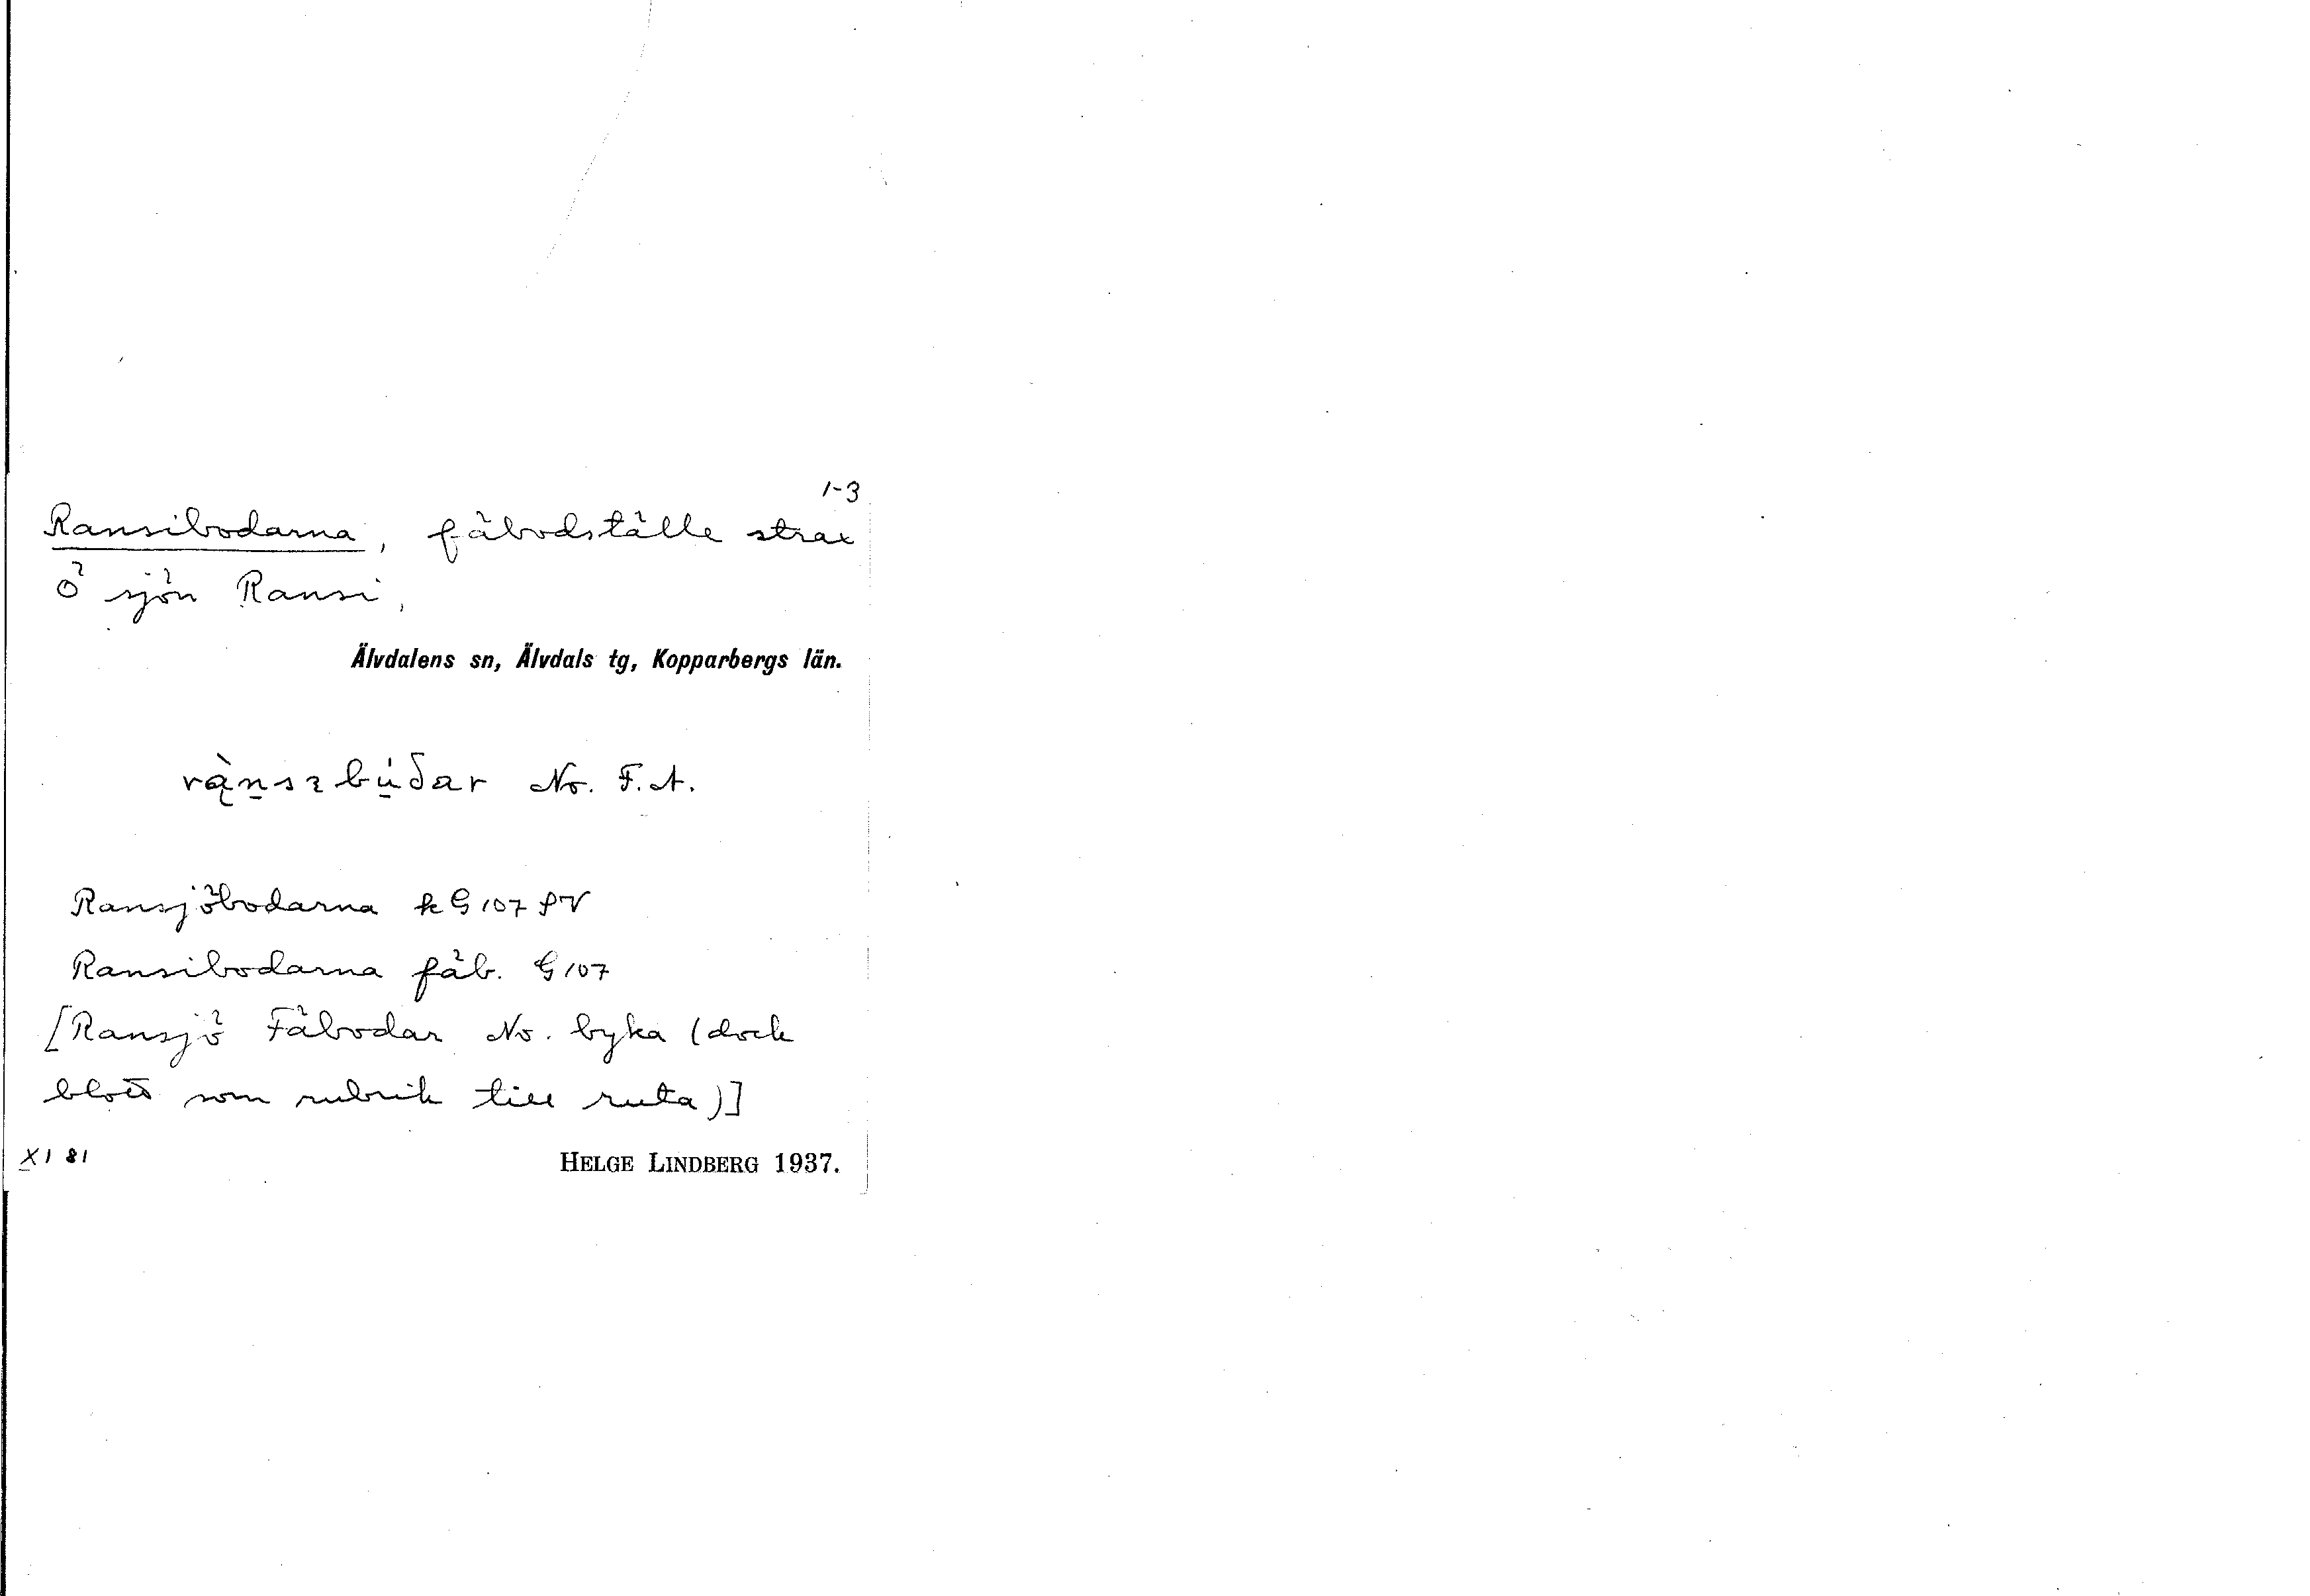 1-3
Ransibodarna, fäbodställe strax
Ö sjön Ransi,
Älvdalens sn, Älvdals tg, Kopparbergs län.
No. F.A.
Ransjöbodarna k G 107 SV
Ransibodarna fäb. G 107
[Ransjö Fäbodar No. byka (dock
blott som rubrik till ruta)]
XI 81
HELGE LINDBERG 1937.